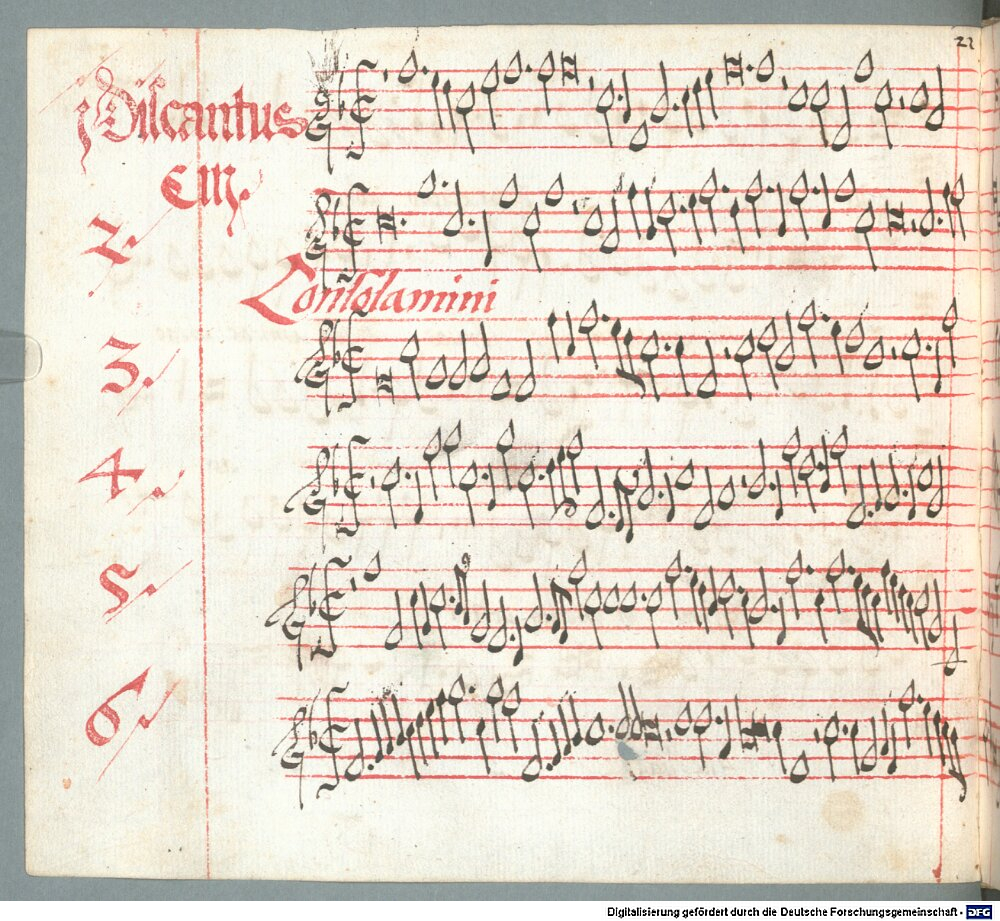 22
Discantus
2.
Consolamini
3.
4.
5.
6.
Digitalisierung gefördert durch die Deutsche Forschungsgemeinschaft - DFG